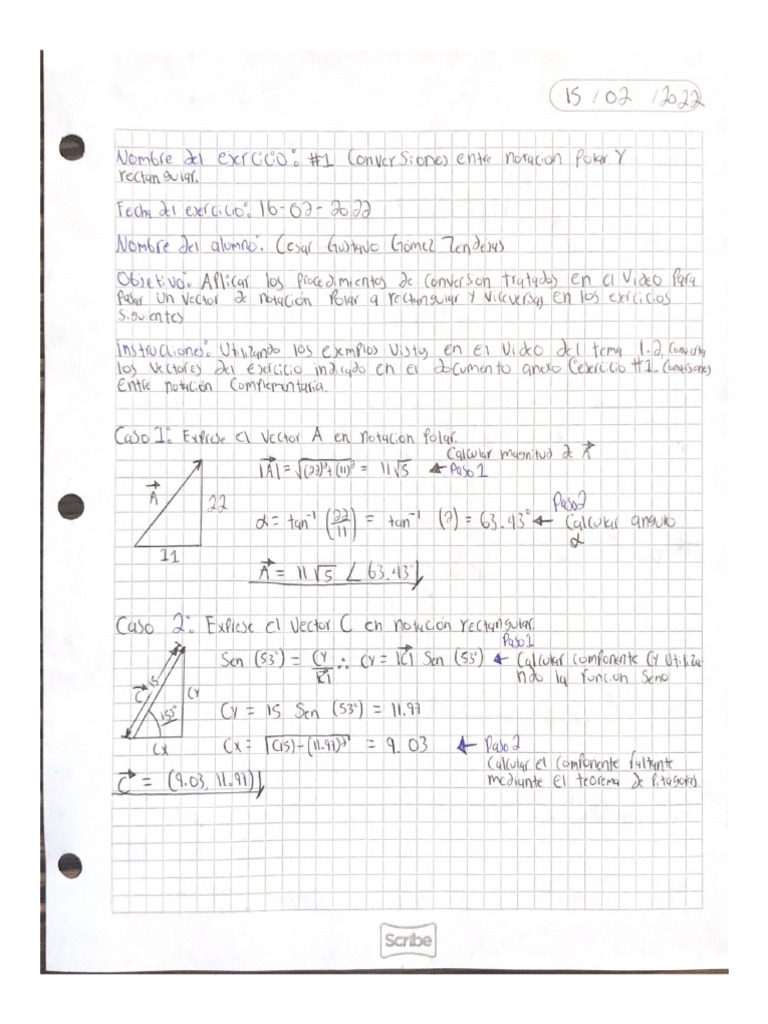 15 / 02 / 2022
Nombre del exercicio: #1 Conversiones entre notacion Polar Y
rectangular.
Fecha del exercicio: 16-02-2022
Nombre del alumno: Cesar Gustavo Gómez Zendejas
Objetivo: Aplicar los Procedimientos de conversion tratados en el Video Para
Pasar un Vector de notación Polar a rectangular y viceversas en los exercicios
Siguientes
Instrucciones: Utilizando los exemplos Vistos en el Video del tema 1.2, Convierta
los Vectores del exercicio indicado en el documento anexo (exercicio #1. Conversiones)
Entre notación Complementaria.
Caso 1: Exprese el Vector A en notacion Polar.
Calcular magnitud de A⃗
|A⃗| = √(22)²+(11)² = 11√5 ← Paso 1
A⃗
22
11
Paso 2
α = tan⁻¹ (22/11) = tan⁻¹ (2) = 63.43° ← Calcular angulo
α
A⃗ = 11√5 ∠ 63.43°
Caso 2: Exprese el Vector C en notación rectangular.
Paso 1
Sen (53°) = CY/|C⃗| ∴ CY = |C⃗| Sen (53°) ← Calcular componente CY Utiliza
ndo la funcion Seno
C⃗ 15
CY
153°
CX
CY = 15 Sen (53°) = 11.97
CX = √(15)-(11.97)² = 9.03 ← Paso 2
Calcular el componente faltante
mediante el teorema de Pitagoras
C⃗ = (9.03, 11.97)
Scribe